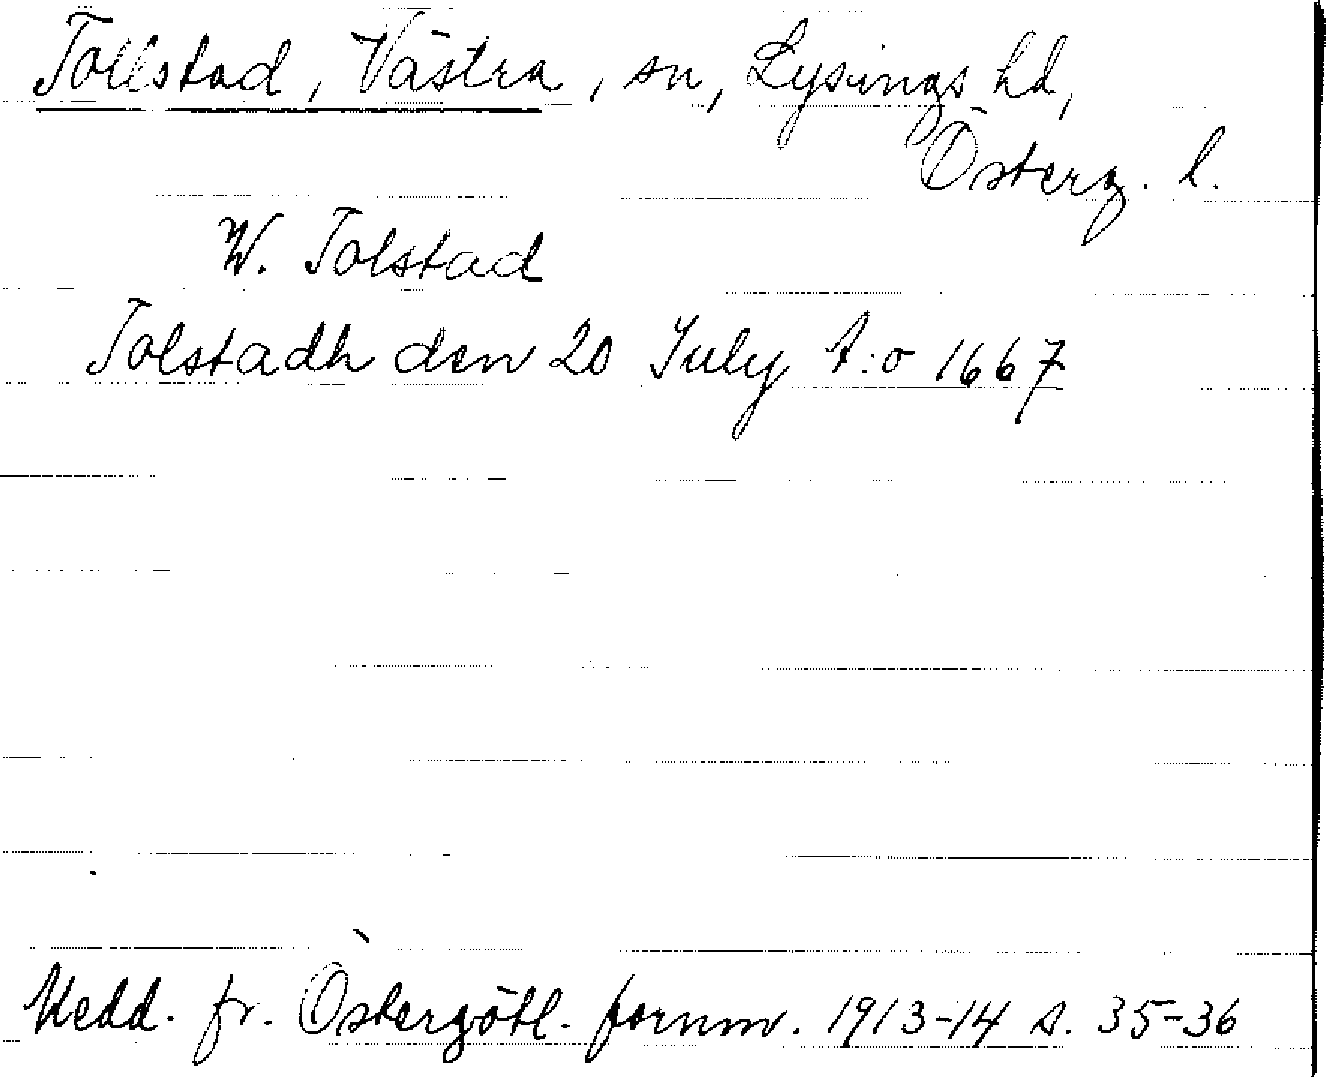 Tollstad, Västra, sn, Lysings hd,
Österg. l.
W. Tolstad
Tolstadh den 20 July A:o 1667
Medd. fr. Östergötl. fornm. 1913-14 s. 35-36